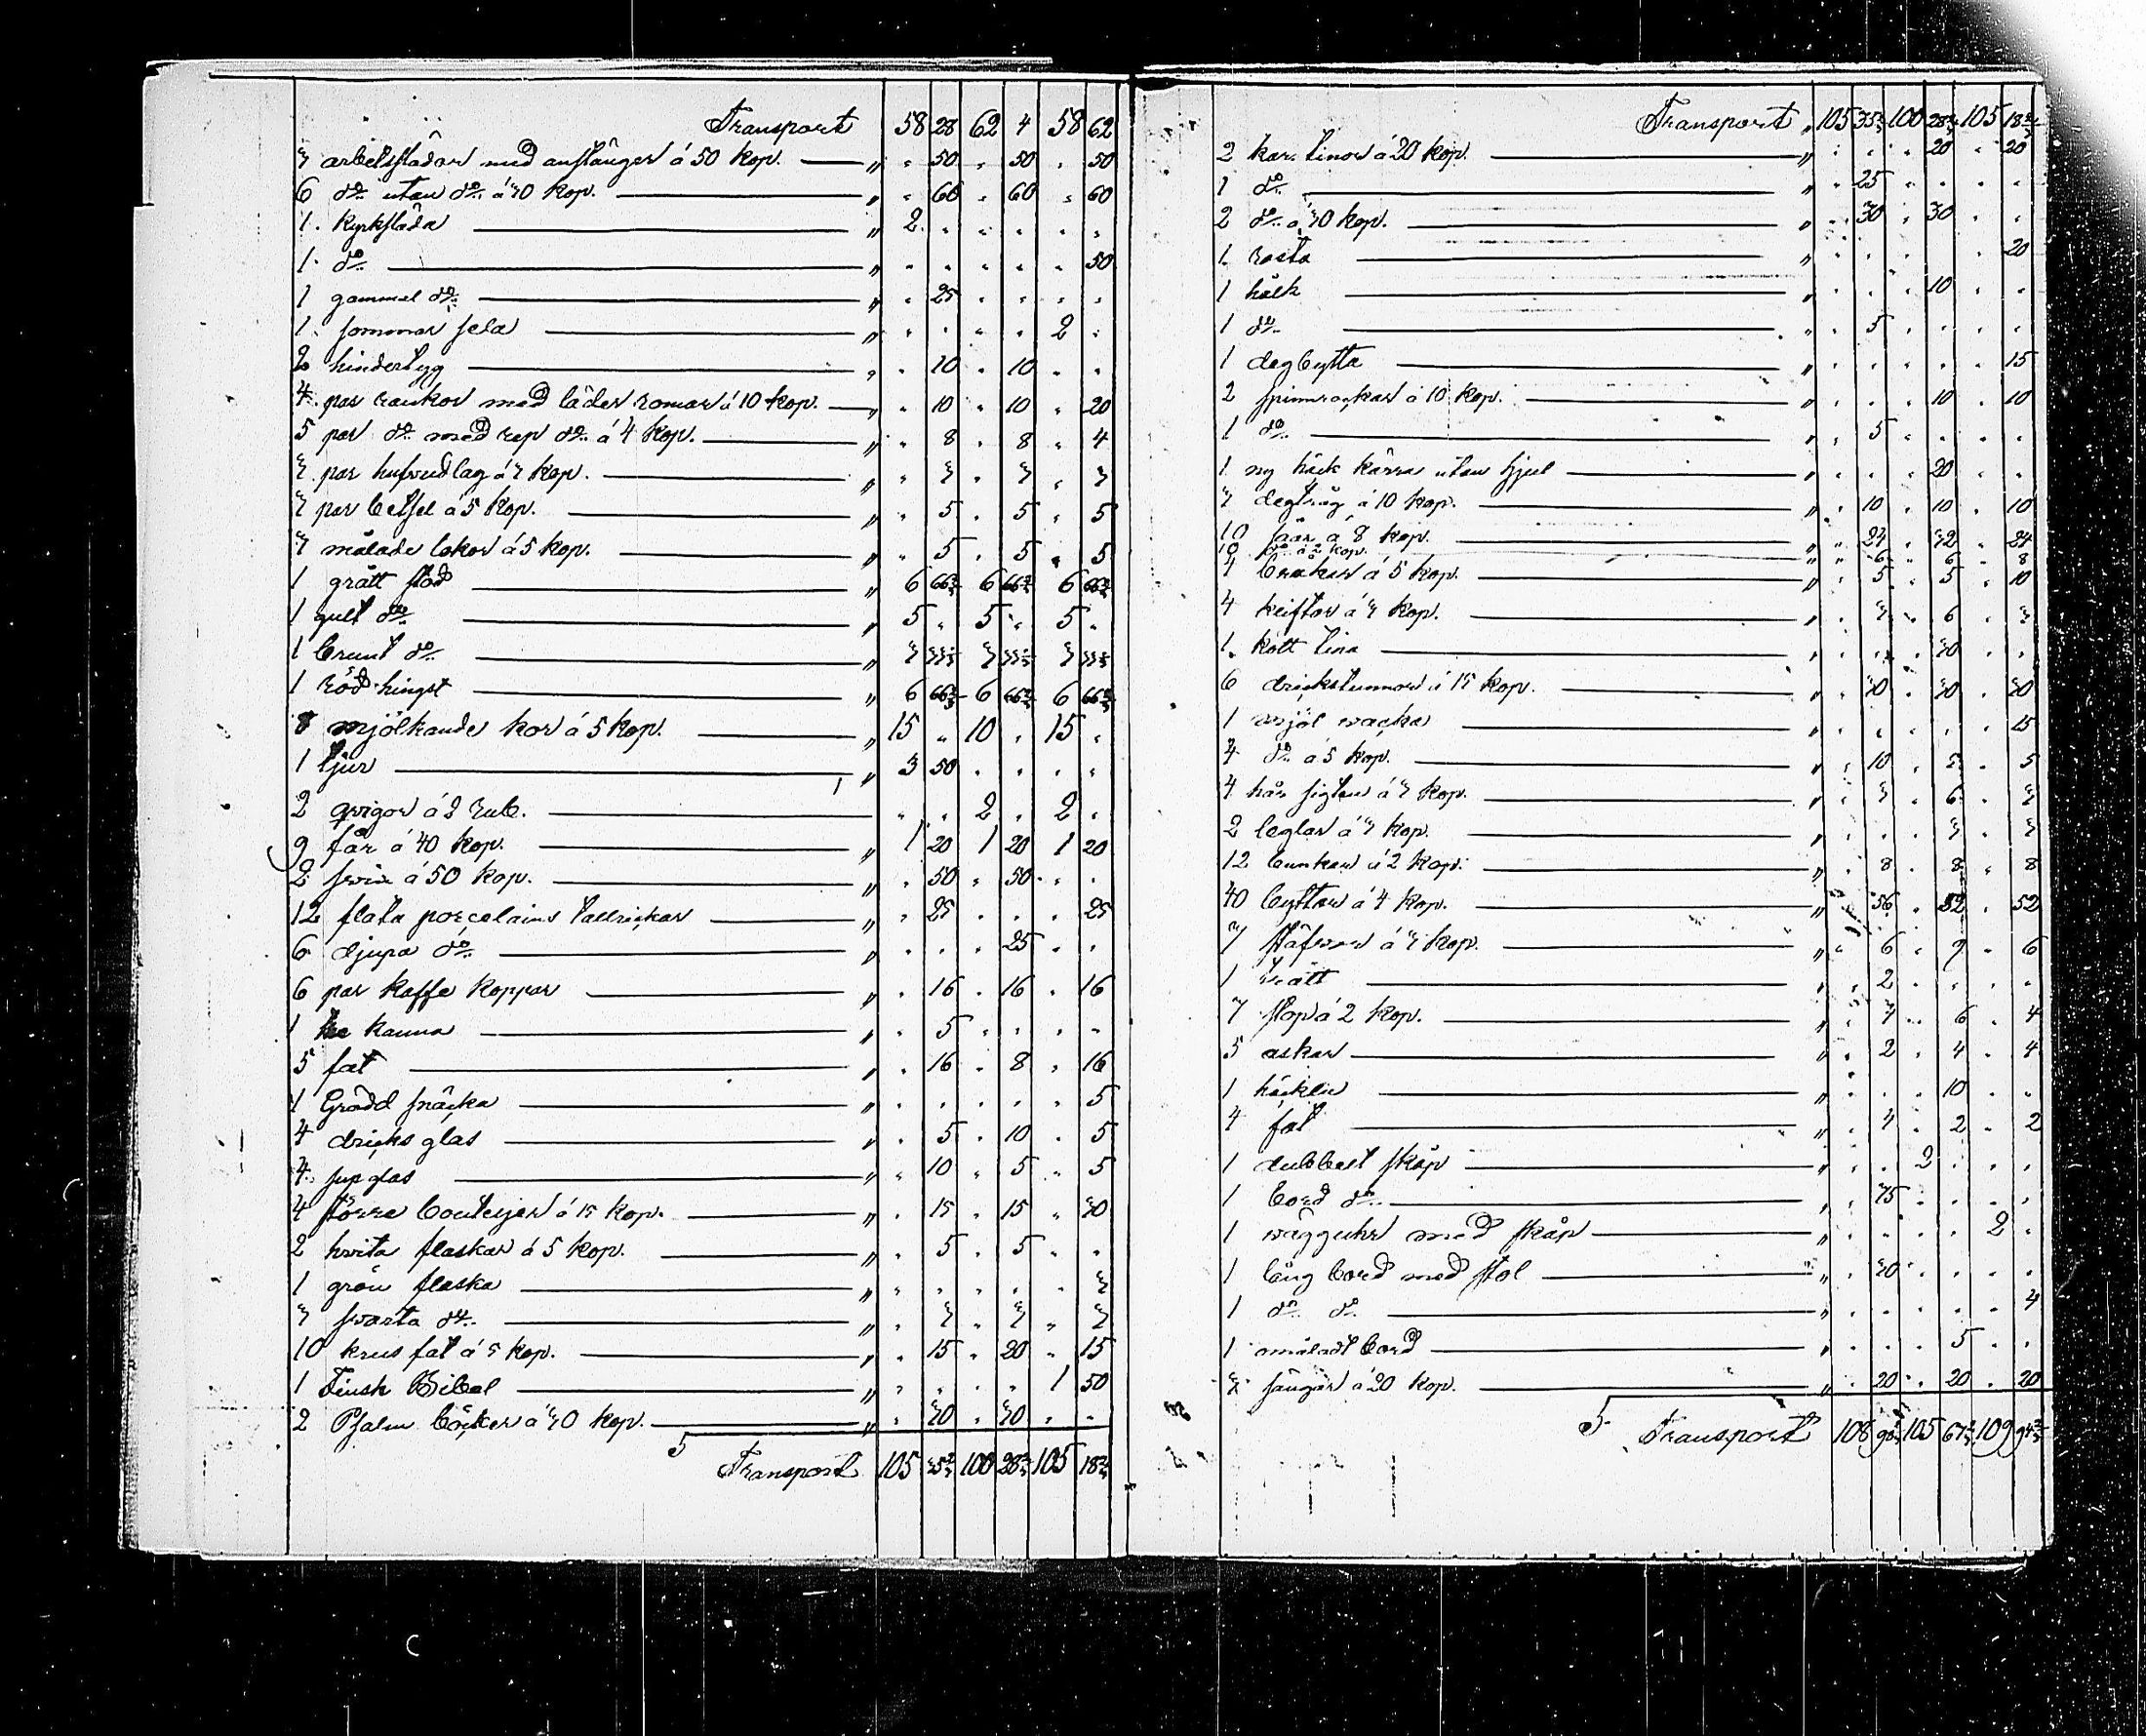 Transport 58 28 62 4 58 62
3 arbetsslädar med anstänger á 50 kop. — " . 50 . 50 . 50
6 do utan do á 30 kop. — " . 60 . 60 . 60
1. Kyrksläda — " 2 . . . . .
1. do — " . . . . . 50
1 gammal do — " . 25 . . . .
1. sommar sela — " . . . . 2 .
2 hindertyg — " . 10 . 10 . .
4. par rankor med läder romar á 10 kop. — " . 10 . 10 . 20
5 par do med rep do á 4 kop. — " . 8 . 8 . 4
3. par hufvudlag á 3 kop. — " . 3 . 3 . 3
3 par betsel á 5 kop. — " . 5 . 5 . 5
3 målade lokor á 5 kop. — " . 5 . 5 . 5
1 grått stod — " 6 66⅔ 6 66⅔ 6 66⅔
1 gult do — " 5 . 5 . 5 .
1 brunt do — " 3 33⅓ 3 33⅓ 3 33⅓
1 röd hingst — " 6 66⅔ 6 66⅔ 6 66⅔
8 mjölkande kor á 5 kop. — " 15 . 10 . 15 .
1 tjur — " 3 50 . . . .
2 qvigor á 2 rub. — . . 2 . 2 .
9 får á 40 kop. — " 1 20 1 20 1 20
2 svin á 50 kop. — " . 50 . 50 . .
12 flata porcelains tallrickar — " . 25 . . . 25
6 djupa do — " . . . 25 . .
6 par kaffe koppar — " . 16 . 16 . 16
1 kanna — " . 5 . . . .
5 fat — " . 16 . 8 . 16
1 Grädd snäcka — " . . . . . 5
4 dricks glas — " . 5 . 10 . 5
4. sup glas — " . 10 . 5 . 5
4 större bouteljer á 15 kop. — " . 15 . 15 . 30
2 hvita flaskor á 5 kop. — " . 5 . 5 . .
1 grön flaska — " . . . . . 3
3 svarta do — " . 3 . 3 . 3
10 krus fat á 5 kop. — " . 15 . 20 . 15
1 Finsk Bibel — " . . . . 1 50
2 Psalm böcker á 30 kop. — " . 30 . 30 . .
5 Transport 105 35⅔ 100 28⅔ 105 18⅔
Transport " 105 35⅔ 100 28⅔ 105 18⅔
2 kar tinor á 20 kop. — " . . . 20 . 20
1 do — " . 25 . . . .
2 do á 30 kop. — " . 30 . 30 . .
1. rosta — " . . . . . 20
1 hålk — " . . . 10 . .
1 do — " . 5 . . . .
1 degbytta — " . . . . . 15
2 spinnrockar á 10 kop. — " . . . 10 . 10
1 do — " . 5 . . . .
1. ny häck kärra utan hjul — " . . . 20 . .
3 degtråg á 10 kop. — " . 10 . 10 . 10
10 såår á 8 kop. — " . 24 . 32 . 24
10 do á 2 kop. — " . 6 . 6 . 8
4 brakor á 5 kop. — " . 5 . 5 . 10
4 keiftar á 3 kop. — " . 3 . 6 . 3
1. kött tina — " . . . 30 . .
6 drickstunnor á 15 kop. — " . 30 . 30 . 30
1 mjöl vacka — " . . . . . 15
4 do á 5 kop. — " . 10 . 5 . 5
4 hår sigtar á 3 kop. — " . 3 . 6 . 3
2 leglar á 3 kop. — " . . . 3 . 3
12 bunkar á 2 kop. — " . 8 . 8 . 8
40 byttor á 4 kop. — " . 56 . 52 . 52
7 stäfvor á 3 kop. — " . 6 . 9 . 6
1 — " . 2 . . . .
7 stop á 2 kop. — " . 4 . 6 . 4
5 askar — " . 2 . 4 . 4
1 häckla — " . . . 10 . .
4 fat — " . 4 . 2 . 2
1 dubbelt skåp — " . . 2 . . .
1 bord do — " . 75 . . . .
1 vägguhr med skåp — " . . . . 2 .
1 lång bord med stol — " . 30 . . . .
1 do do — " . . . . . 4
1 omåladt bord — " . . . 5 . .
3 sängar á 20 kop. — " . 20 . 20 . 20
5 Transport 108 105 67⅔ 109 94⅔